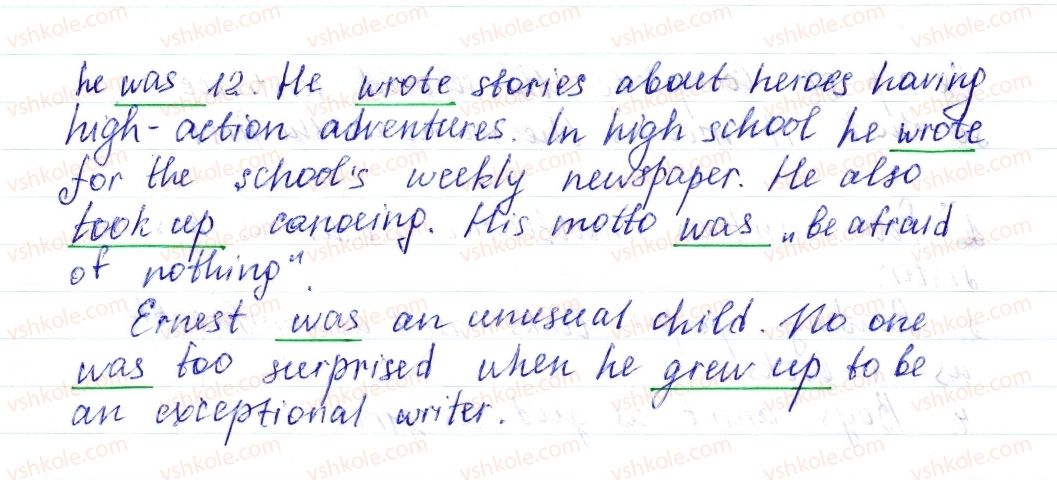 he was 12. He wrote stories about heroes having
high-action adventures. In high school he wrote
for the school's weekly newspaper. He also
took up canoeing. His motto was „be afraid
of nothing".
Ernest was an unusual child. No one
was too surprised when he grew up to be
an exceptional writer.